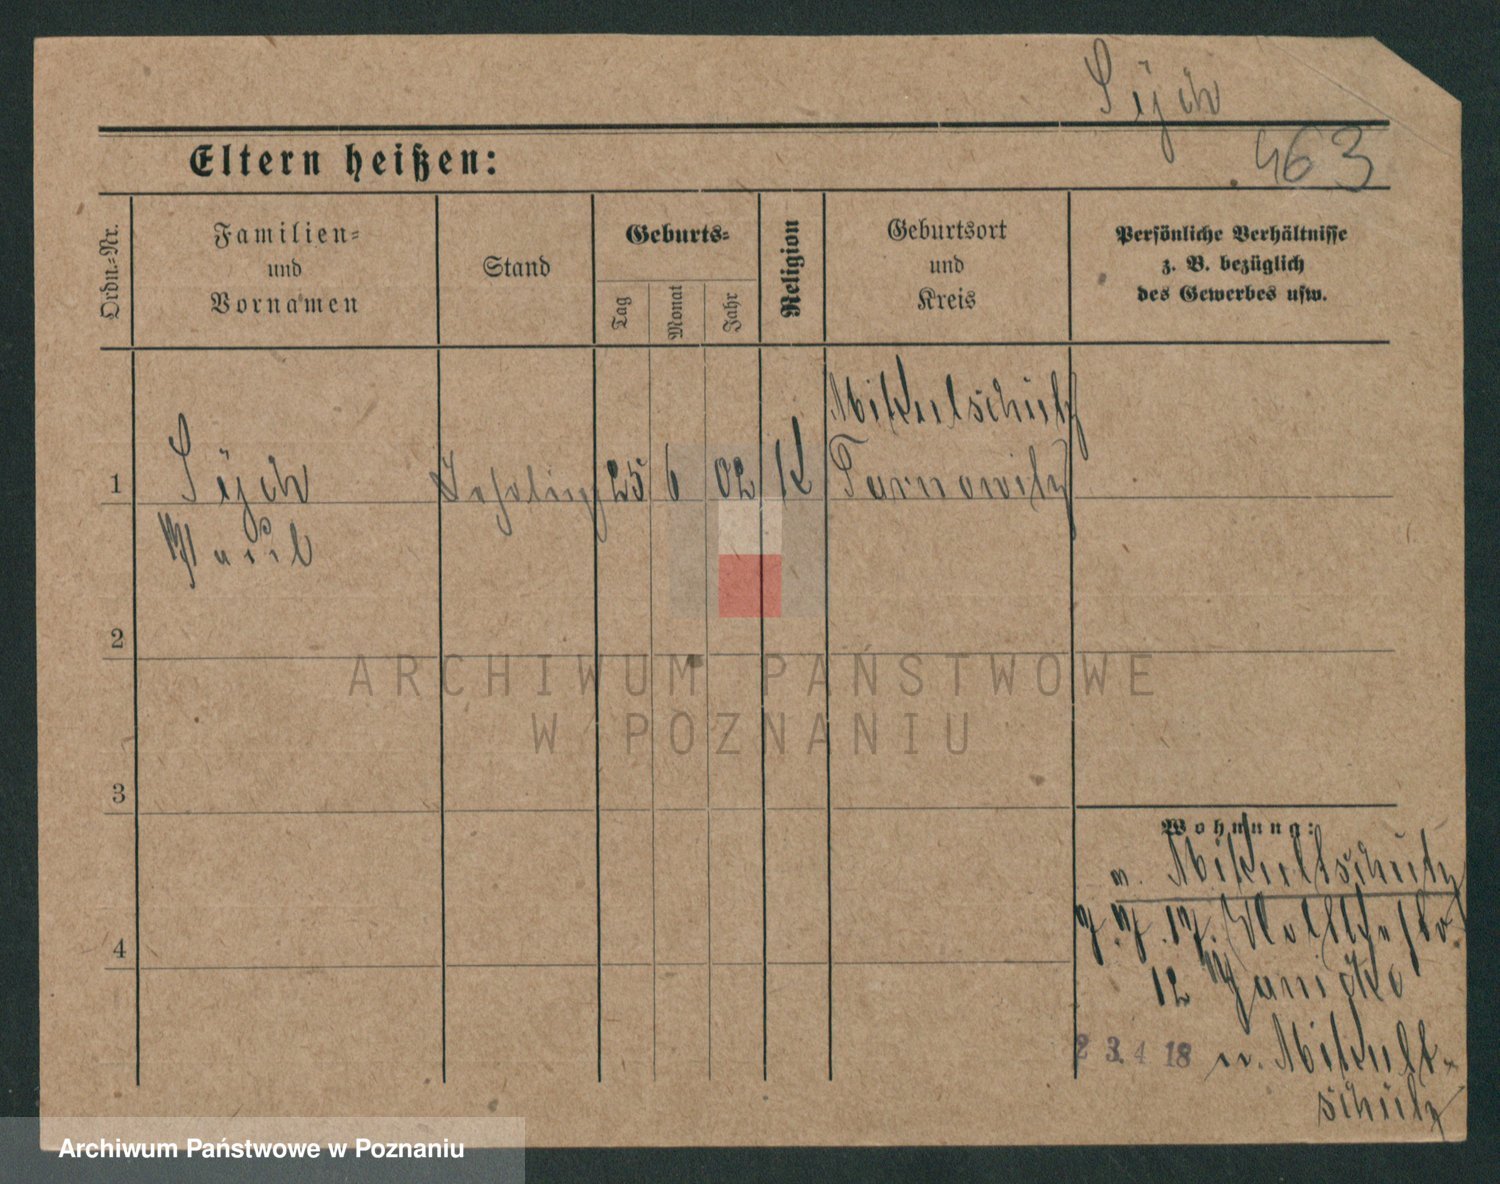 Sÿch
463
Eltern heißen:
Ordn.=Nr.
Familien=
und
Vornamen
Stand
Geburts=
Tag
Monat
Jahr
Religion
Geburtsort
und
Kreis
Persönliche Verhältnisse
z. B. bezüglich
des Gewerbes usw.
Mikultschütz
1 Sÿch Lehrling 25 6 02 K Tarnowitz
Paul
2
3
4
Wohnung:
n. Mikultschütz
12
23.4 18 n. Mikult-
schütz
ARCHIWUM PAŃSTWOWE
W POZNANIU
Archiwum Państwowe w Poznaniu